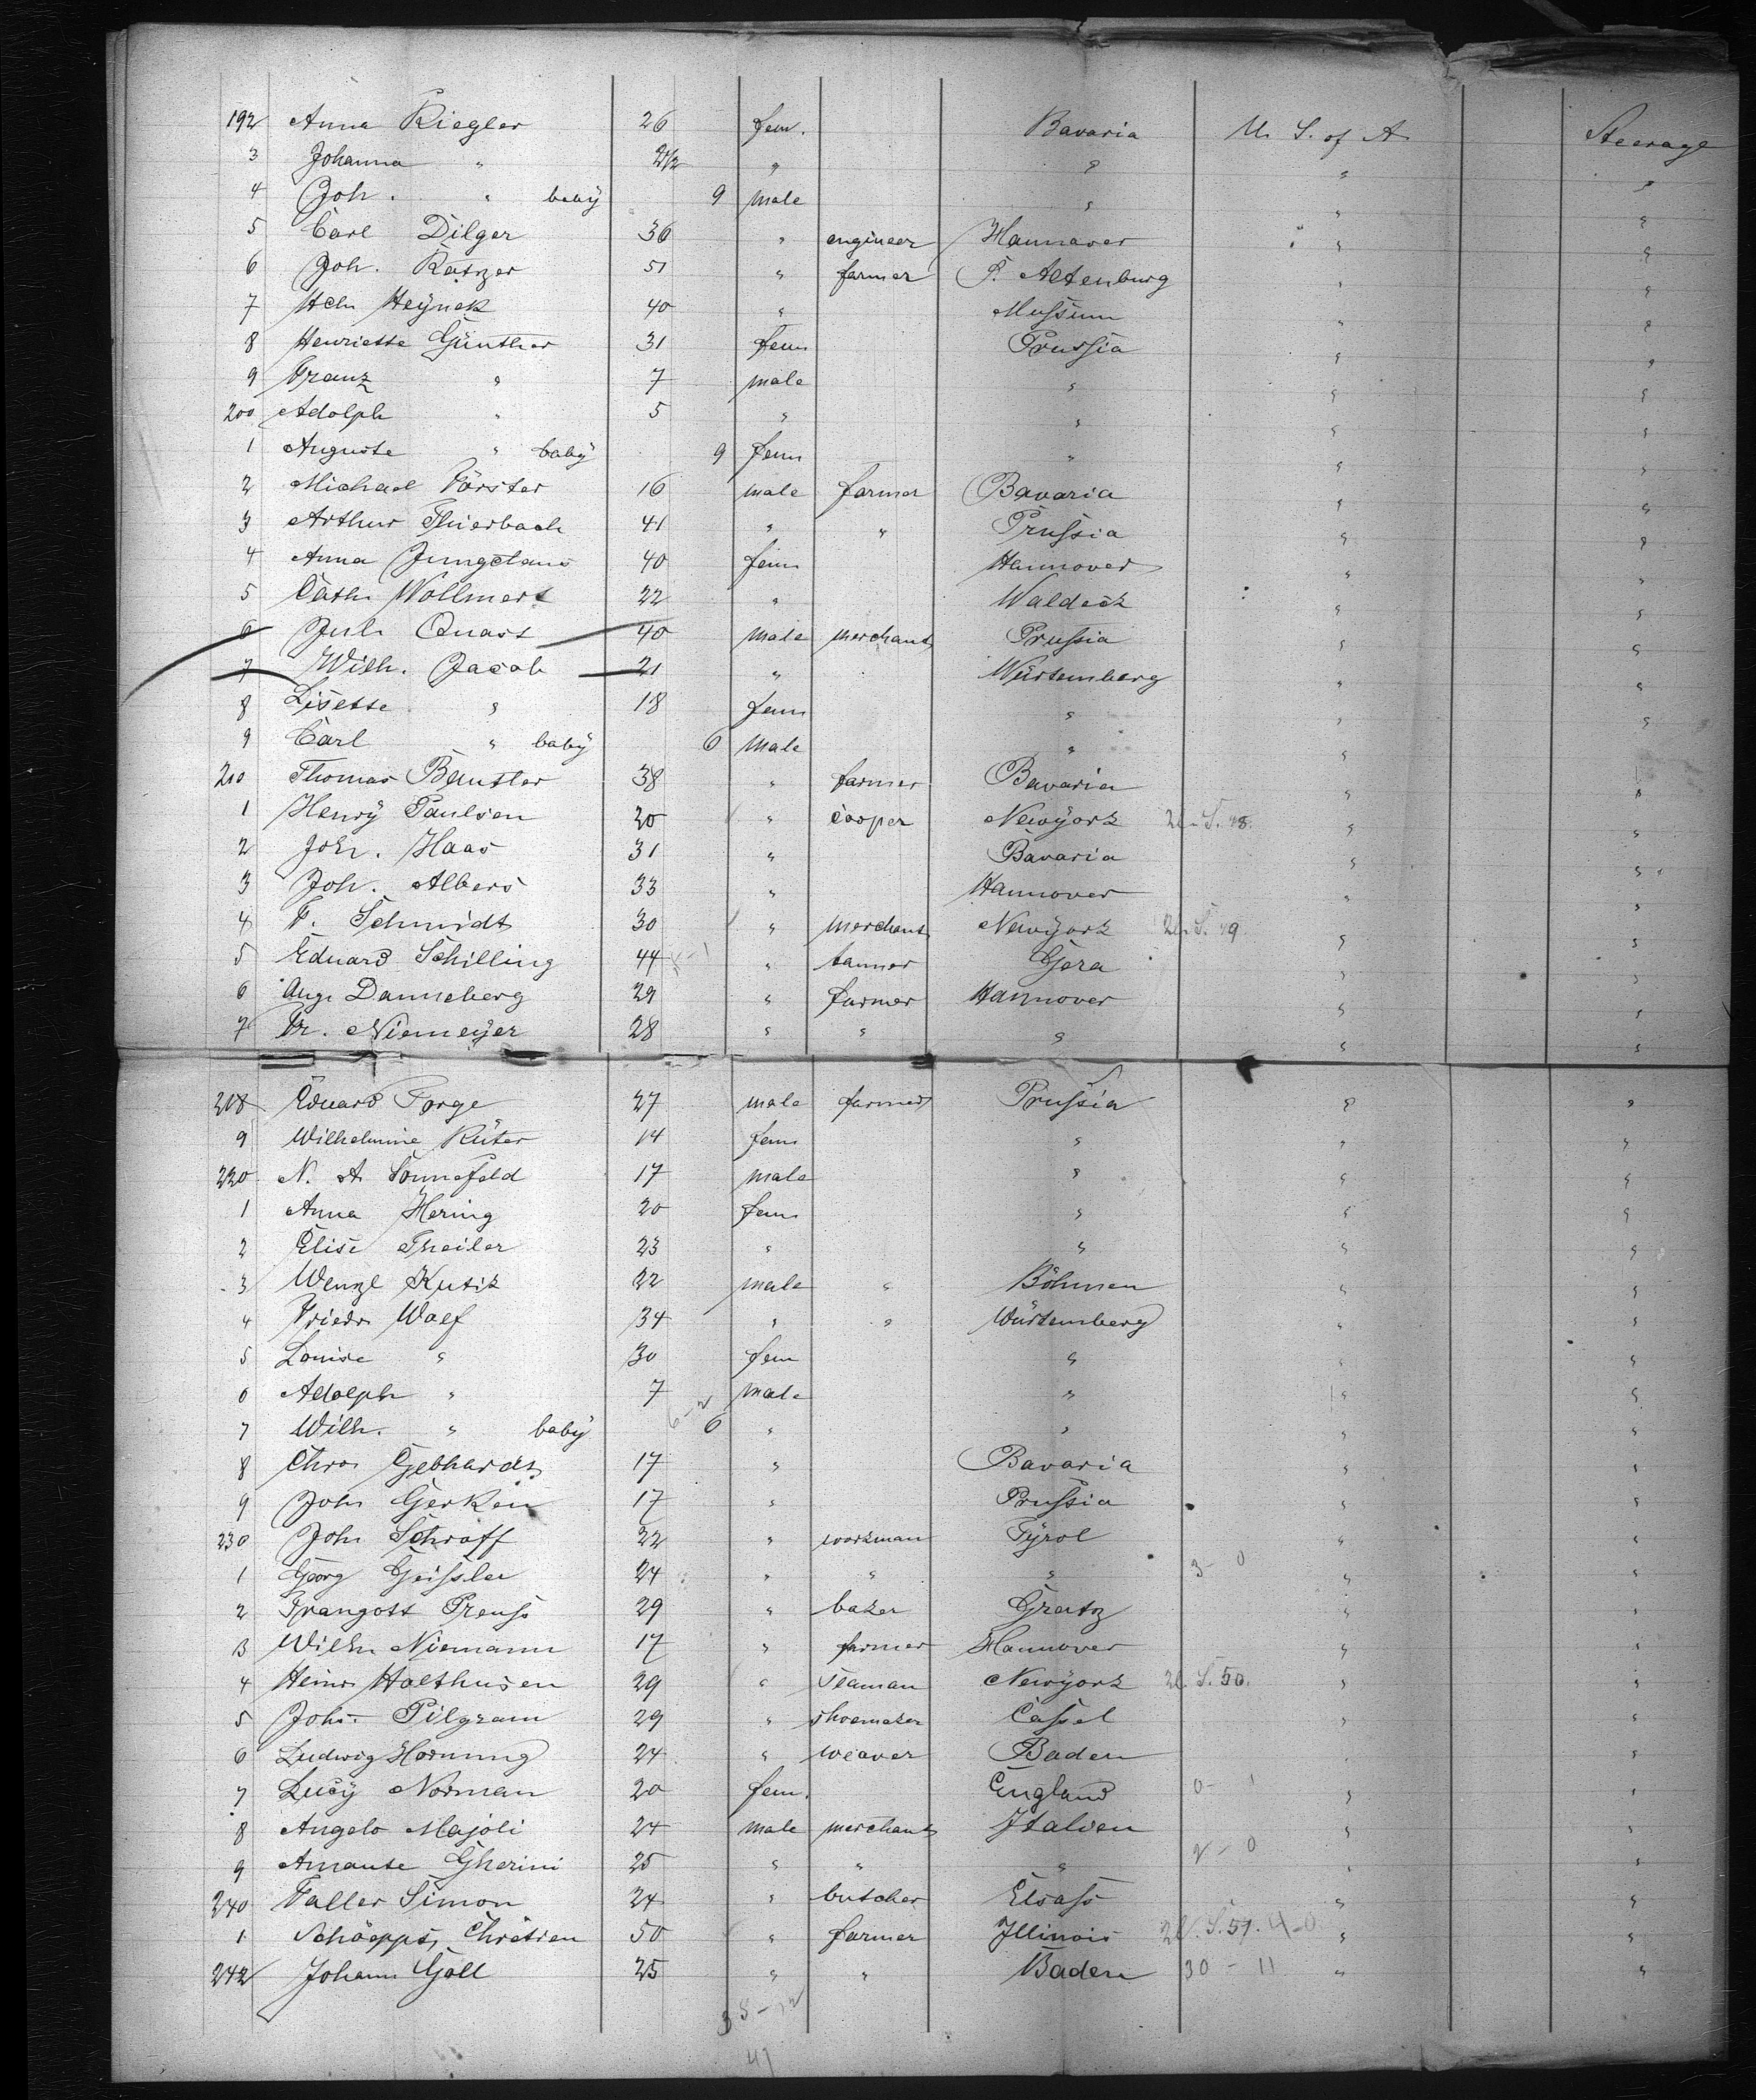 192 Anna Riegler 26 fem. Bavaria U. S. of A. Steerage
3 Johanna " 2½ " " " "
4 Joh. " baby 9 male " " "
5 Carl Dilger 36 " engineer Hannover " "
6 Joh. Ratzer 51 " farmer S. Altenburg " "
7 Hch Heÿnek 40 " " "
8 Henriette Günther 31 fem Prussia " "
9 Franz " 7 male " " "
200 Adolph " 5 " " " "
1 Auguste " baby 9 fem " " "
2 Michael Förster 16 male farmer Bavaria " "
3 Arthur Thierbach 41 " " Prussia " "
4 Anna Jungclaus 40 fem Hannover " "
5 Cath. Wollmers 22 " Waldeck " "
6 Jul. Quast 40 male merchant Prussia " "
7 Wilh. Jacob 21 " Würtemberg " "
8 Lisette " 18 fem " " "
9 Carl " baby 6 male " " "
210 Thomas Beutler 38 " farmer Bavaria " "
1 Henrÿ Paulsen 20 " cooper Newÿork S. 48. " "
2 Joh. Haas 31 " Bavaria " "
3 Joh. Albers 33 " Hannover " "
4 F. Schmidt 30 " merchant Newÿork S. 49 " "
5 Eduard Schilling 44 " tanner Gera " "
6 Aug. Danneberg 29 " farmer Hannover " "
7 Fr. Niemeÿer 28 " " " " "
218 Eduard Torge 27 male farmer Prussia " "
9 Wilhelmine Rüter 14 fem " " "
220 N. A. Sonnefeld 17 male " " "
1 Anna Hering 20 fem " " "
2 Elise Theiler 23 " " " "
3 Wenzl Kutik 22 male " Böhmen " "
4 Friedr Wolf 34 " " Würtemberg " "
5 Louise " 30 fem " " "
6 Adolph " 7 male " " "
7 Wilh. " baby 6 " " " "
8 Chr. Gebhardt 17 " Bavaria " "
9 Joh Gerken 17 " Prussia " "
230 Joh Schroff 22 " workman Tÿrol " "
1 Georg Geissler 24 " " " 3 - 0 " "
2 Trangott Preuss 29 " baker Gratz " "
3 Wilh Niemann 17 " farmer Hannover " "
4 Heinr Holthusen 29 " Seaman Newÿork S. 50. " "
5 Johs. Pilgram 29 " shoemaker Cassel " "
6 Ludwig Hornung 24 " weaver Baden " "
7 Lucÿ Norman 20 fem. England 0 - 1 " "
8 Angelo Majoli 24 male merchant Italien " "
9 Amante Gherini 25 " " " 2 - 0 " "
240 Faller Simon 24 " butcher Elsass " "
1 Schöepps, Chrétien 50 " farmer Illinois S. 51. 4-0 " "
242 Johann Göll 25 " " Baden 30 - 11 " "
38 - 12